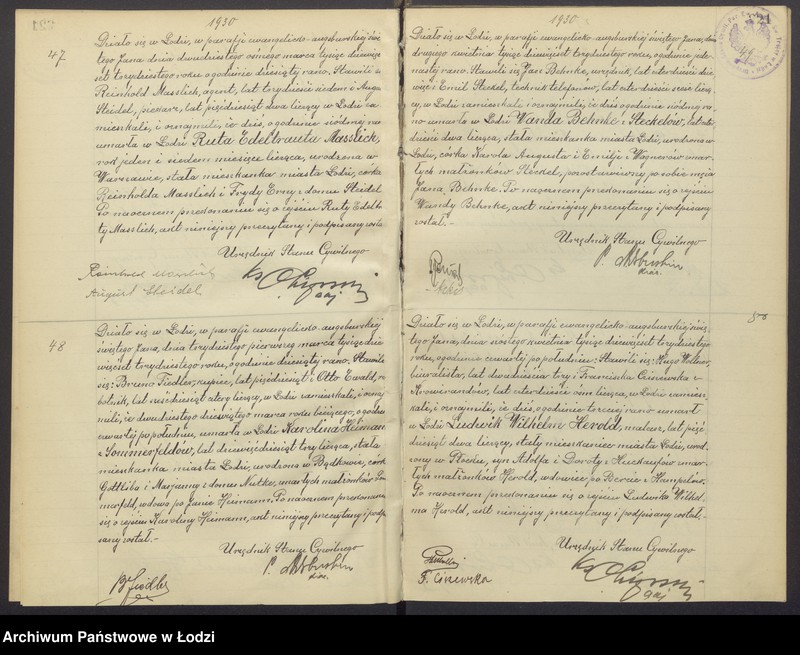 1930
47
Działo się w Łodzi, w parafji ewangelicko-augsburskiej świę-
tego Jana dnia dwudziestego ósmego marca tysiąc dziewię-
set trzydziestego roku, o godzinie dziesiątej rano. Stawili się
Reinhold Masslich, agent, lat trzydzieści siedem i August
Steidel, piekarz, lat pięćdziesiąt dwa liczący w Łodzi za-
mieszkali, i oznajmili, że dziś, o godzinie siódmej rano
umarła w Łodzi Ruta Edeltrauta Masslich,
rok jeden i siedem miesięcy licząca, urodzona w
Warszawie, stała mieszkanka miasta Łodzi, córka
Reinholda Masslich i Frydy Erny z domu Steidel
Po naocznem przekonaniu się o zejściu Ruty Edeltra-
ty Masslich, akt niniejszy przeczytany i podpisany został
Urzędnik Stanu Cywilnego
Reinhold Masslich
August Steidel
48
Działo się w Łodzi, w parafji ewangelicko-augsburskiej
świętego Jana, dnia trzydziestego pierwszego marca tysiąc dzie-
więćset trzydziestego roku, o godzinie dziesiątej rano. Stawili
się: Bruno Fiedler, kupiec, lat pięćdziesiąt i Otto Ewald, ro-
botnik, lat sześćdziesiąt cztery liczący, w Łodzi zamieszkali, i oznaj-
mili, że dwudziestego dziewiątego marca roku bieżącego, o godzinie
czwartej po południu, umarła w Łodzi Karolina Heimann
z Sommerfeldów, lat dziewięćdziesiąt trzy licząca, stała
mieszkanka miasta Łodzi, urodzona w Bądkowie, córka
Gottliba i Marjanny z domu Mutke, umarłych małżonków Som-
merfeld, wdowa po Janie Heimann. Po naocznem przekonaniu
się o zejściu Karoliny Heimann, akt niniejszy przeczytany i podpi-
sany został.-
Urzędnik Stanu Cywilnego
B Fiedler
1930
Działo się w Łodzi, w parafji ewangelicko-augsburskiej świętego Jana, dnia
drugiego kwietnia tysiąc dziewięćset trzydziestego roku, o godzinie jede-
nastej rano. Stawili się Jan Behnke, urzędnik, lat czterdzieści dzie-
więć i Emil Steckel, technik telefonów, lat czterdzieści sześć liczą-
cy, w Łodzi zamieszkali i oznajmili, że dziś o godzinie siódmej ra-
no umarła w Łodzi Wanda Behnke z Steckelów, lat czter-
dzieści dwa licząca, stała mieszkanka miasta Łodzi, urodzona w
Łodzi, córka Karola Augusta i Emilji z Wagnerów umar-
łych małżonków Steckel, pozostawiwszy po sobie męża
Jana Behnke. Po naocznem przekonaniu się o zejściu
Wandy Behnke, akt niniejszy przeczytany i podpisany
został.-
Urzędnik Stanu Cywilnego
50
Działo się w Łodzi, w parafji ewangelicko-augsburskiej świę-
tego Jana, dnia szóstego kwietnia tysiąc dziewięćset trzydziestego
roku, o godzinie czwartej po południu: Stawili się: Hugo Wollner,
biuralista, lat dwadzieścia trzy i Franciszka Ciszewska z
lat czterdzieści ośm licząca, w Łodzi zamiesz-
kali, i oznajmili, że dziś, o godzinie trzeciej rano umarł
w Łodzi Ludwik Wilhelm Herold, malarz, lat pięć-
dziesiąt dwa liczący, stały mieszkaniec miasta Łodzi, urodzo-
ny w Płocku, syn Adolfa i Doroty z umar-
łych małżonków Herold, wdowiec po z Hampelów.
Po naocznem przekonaniu się o zejściu Ludwika Wilhel-
ma Herold, akt niniejszy przeczytany i podpisany został.-
Urzędnik Stanu Cywilnego
F. Ciszewska
Archiwum Państwowe w Łodzi